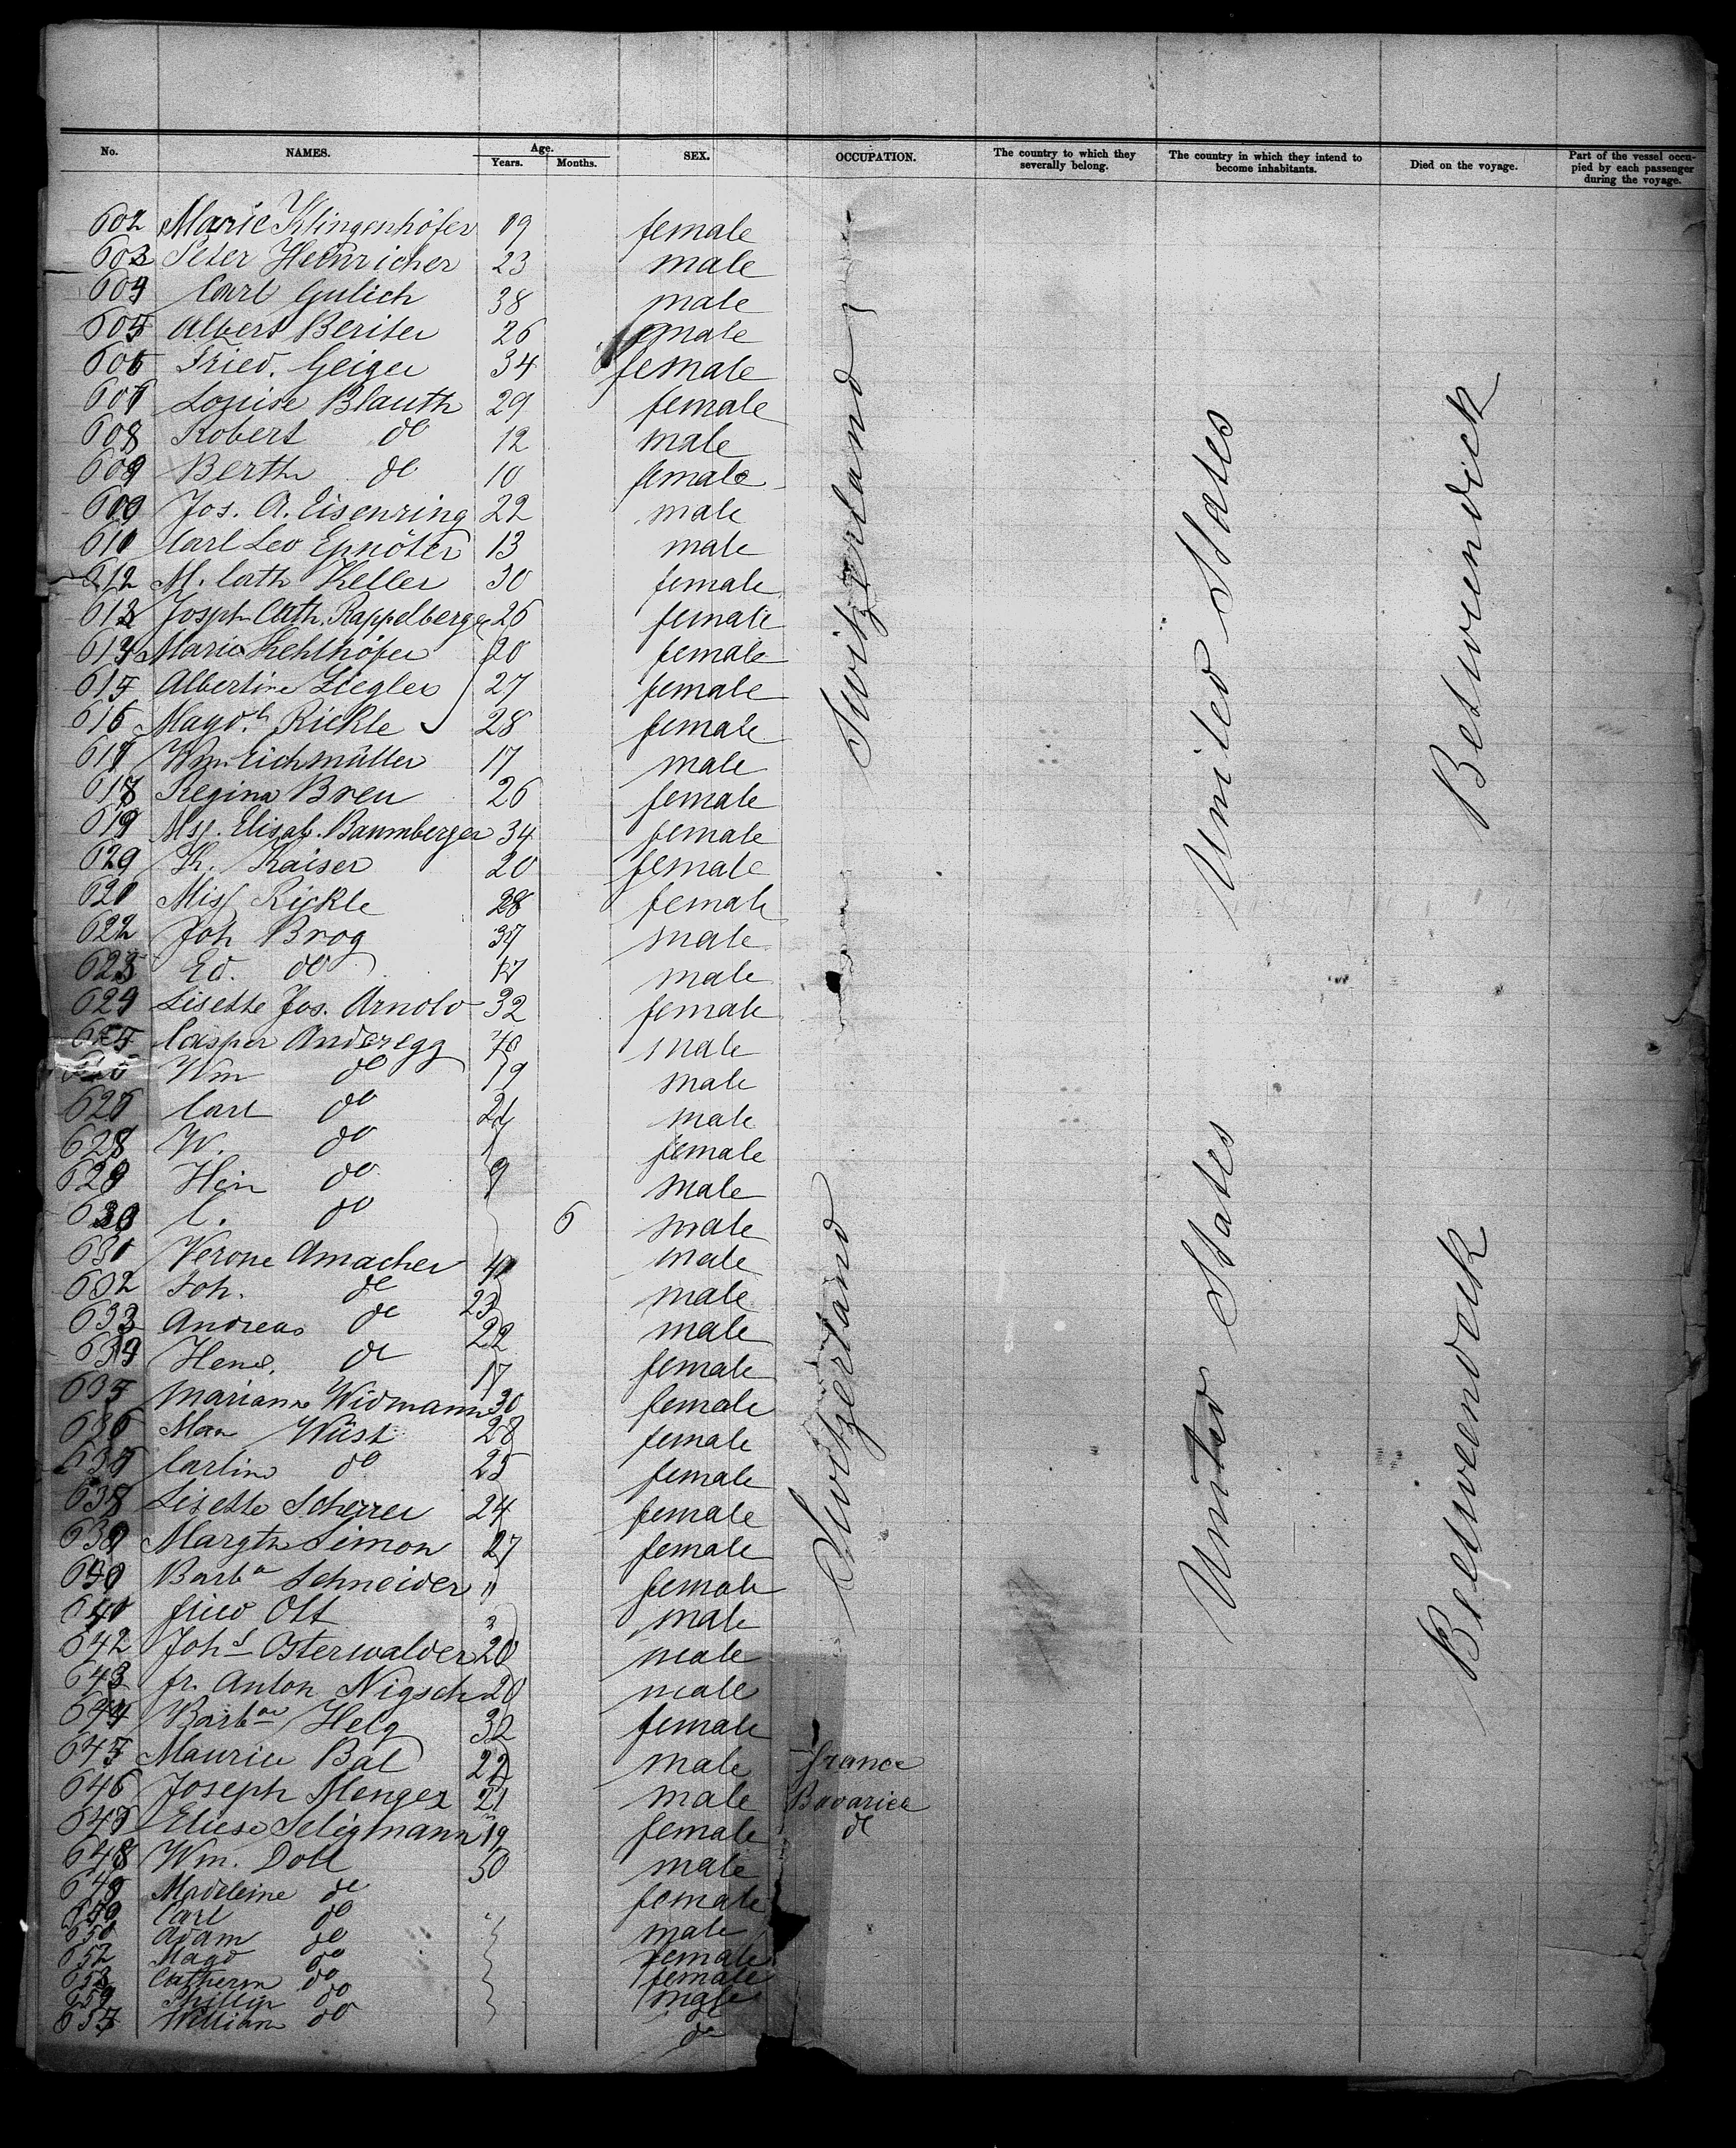 No. NAMES. Age. Years. Months. SEX. OCCUPATION. The country to which they severally belong. The country in which they intend to become inhabitants. Died on the voyage. Part of the vessel occupied by each passenger during the voyage.
602 Marie Klingenhöfer 19 female
603 Peter Heinricher 23 male
604 Carl Gulich 38 male
605 Albert Beriter 26 male
606 Fried. Geiger 34 female
607 Louise Blauth 29 female
608 Robert do 12 male
609 Berth do 10 female
Jos. A. Eisenring 22 male
Carl Leo 13 male
612 M. Cath Keller 30 female
Josph Cath. Rappelberger 26 female
614 Marie Kehlhöfer 20 female
615 Albertine Ziegler 27 female
616 Magd. Rickle 28 female
617 Wm. Eichmüller 17 male
618 Regina Breu 26 female
619 Elisab. Baumberger 34 female
K. Kaiser 20 female
Miss Rickle 28 female
622 Joh Brog 37 male
623 Ed. do male
624 Lisette Jos. Arnold 32 female
625 Casper Anderegg male
Wm do 19 male
Carl do male
628 W. do female
629 Hein do 9 male
630 C. do 6 male
Verone Amacher male
632 Joh. do 23 male
633 Andreas do 22 male
634 Hend. do 17 female
635 Mariann Widmann 30 female
636 Wüst 28 female
Carlin do 25 female
638 Lisette Scherrer 24 female
639 Margth Simon 27 female
Barba Schneider " female
fried Ott male
642 Joh Osterwalder 20 male
643 fr. Anton Nigsch 20 male
644 Barb Helg 32 female
645 Maurice Bal 22 male france
646 Joseph Menger 21 male Bavaria
Eliese Seligmann 19 female do
648 Wm. Doll 50 male
Madeleine do female
Carl do male
Adam do male
652 Magd do female
653 Catherin do female
654 Phillip do male
655 William do do
Switzerland
United States
Betweendeck
Switzerland
United States
Betweendeck